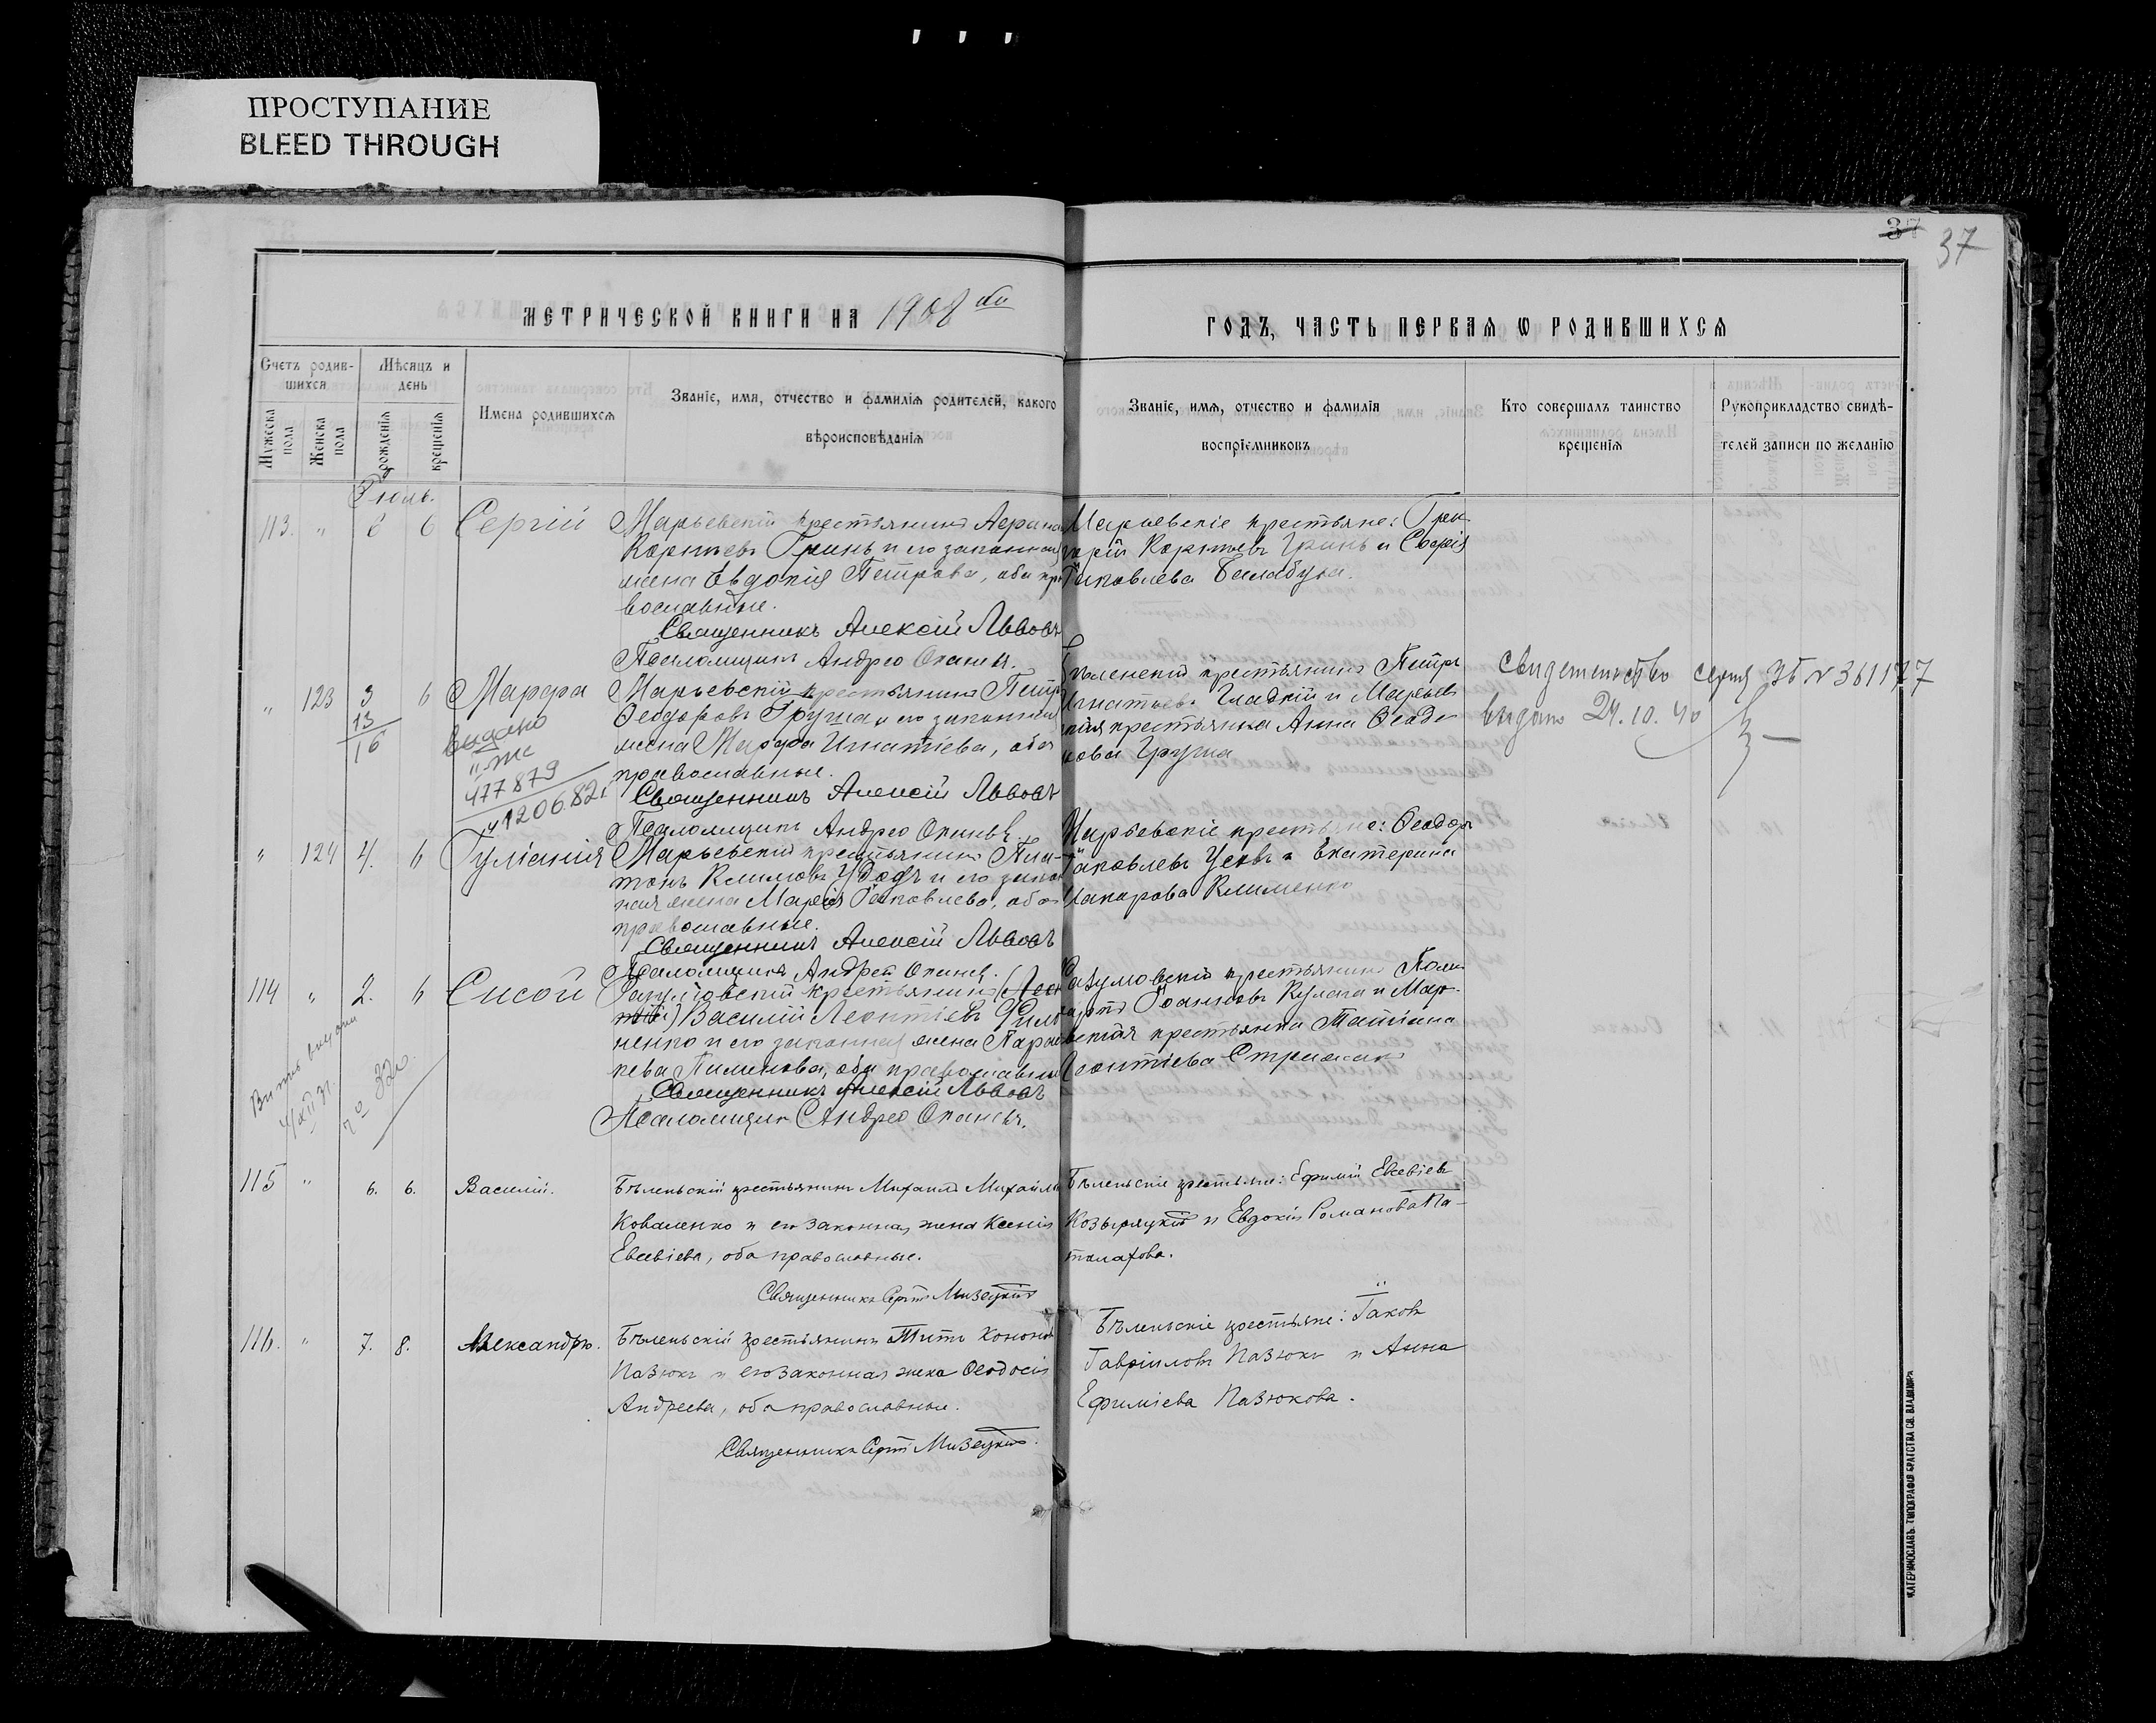 ПРОСТУПАНИЕ
BLEED THROUGH
37
37
МЕТРИЧЕСКОЙ КНИГИ НА 1908
ГОДЪ, ЧАСТЬ ПЕРВАЯ Ѡ РОДИВШИХСЯ
Счетъ родив-
шихся
Мужеска
пола
Женска
пола
Мѣсяцъ и
день
рожденія
крещенія
Имена родившихся
Званіе, имя, отчество и фамилія родителей, какого
вѣроисповѣданія
Званіе, имя, отчество и фамилія
воспріемниковъ
Кто совершалъ таинство
крещенія
Рукоприкладство свидѣ-
телей записи по желанію
Іюль.
113. " 6 6 Сергій
Марьевскій крестьянинъ
Корнѣевъ Гринь и его законная
жена Евдокія Петрова, оба пра
вославные.
Священникъ Алексій Львовъ
Псаломщикъ Андрей
Марьевскіе крестьяне: Гри
горій Корнѣевъ Гринь и
Іаковлева Балабуха.
" 123 3 6 Марфа
13
16
видано
477879
Марьевскій крестьянинъ Петръ
Ѳеодоровъ Груша и его законная
жена Марфа Игнатіева, оба
православные.
Священникъ Алексій Львовъ
Псаломщикъ Андрей
Бѣленскій крестьянинъ Петръ
Игнатьевъ Гладкій и Марьев
ская крестьянка Анна Ѳеодо
рова Груша
свидетельство серия № 361177
выдано 24.10.40
" 124 4. 6 Іуліанія
Марьевскій крестьянинъ Пла-
тонъ Климовъ и его закон
ная жена Марія Іаковлева, оба
православные.
Священникъ Алексій Львовъ
Псаломщикъ Андрей
Марьевскіе крестьяне: Ѳеодоръ
Іаковлевъ Усовъ и Екатерина
Макарова Клименко
114 " 2. 6 Сисой
Разумовскій крестьянинъ
Василій Леонтіевъ Фили
ненко и его законная жена Параске
ева Пименова, оба православные
Священникъ Алексій Львовъ
Псаломщикъ Андрей
Разумовскій крестьянинъ
Іоанновъ Кулага и Марь-
евская крестьянка Татіана
Леонтіева Стрижакъ
115 " 6. 6. Василій.
Бѣленьскій крестьянинъ Михаилъ Михайловъ
Коваленко и его законная жена Ксенія
Евсевіева, оба православные.
Священникъ Мизецкій
Бѣленьскіе крестьяне: Ефимій Евсевіевъ
Козыряцкій и Евдокія Романова Па-
талахова.
116. " 7. 8. Александръ.
Бѣленьскій крестьянинъ Титъ Кононовъ
Пазюкъ и его законная жена Ѳеодосія
Андреева, оба православные.
Священникъ Мизецкій.
Бѣленьскіе крестьяне: Іаковъ
Гавріиловъ Пазюкъ и Анна
Ефиміева Пазюкова.
ЕКАТЕРИНОСЛАВЪ. ТИПОГРАФІЯ БРАТСТВА СВ. ВЛАДИМІРА